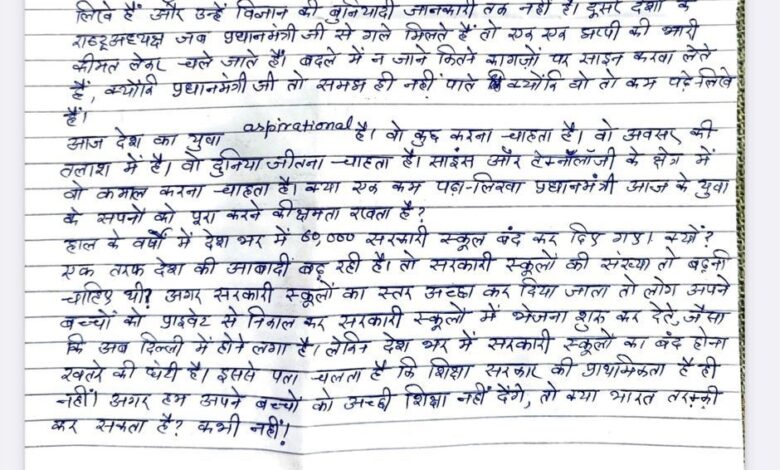 लिखे हैं और उन्हें विज्ञान की बुनियादी जानकारी तक नहीं है। दूसरे देशों के
राष्ट्रअध्यक्ष जब प्रधानमंत्री जी से गले मिलते हैं तो एक एक झप्पी की भारी
कीमत लेकर चले जाते हैं। बदले में न जाने कितने कागज़ों पर साइन करवा लेते
हैं, क्योंकि प्रधानमंत्री जी तो समझ ही नहीं पाते क्योंकि वो तो कम पढ़े-लिखे
हैं।
आज देश का युवा aspirational है। वो कुछ करना चाहता है। वो अवसर की
तलाश में है। वो दुनिया जीतना चाहता है। साइंस और टेक्नॉलॉजी के क्षेत्र में
वो कमाल करना चाहता है। क्या एक कम पढ़ा-लिखा प्रधानमंत्री आज के युवा
के सपनों को पूरा करने की क्षमता रखता है?
हाल के वर्षों में देश भर में 60,000 सरकारी स्कूल बंद कर दिए गए। क्यों?
एक तरफ देश की आबादी बढ़ रही है। तो सरकारी स्कूलों की संख्या तो बढ़नी
चाहिए थी? अगर सरकारी स्कूलों का स्तर अच्छा कर दिया जाता तो लोग अपने
बच्चों को प्राइवेट से निकाल कर सरकारी स्कूलों में भेजना शुरू कर देते, जैसा
कि अब दिल्ली में होने लगा है। लेकिन देश भर में सरकारी स्कूलों का बंद होना
खतरे की घंटी है। इससे पता चलता है कि शिक्षा सरकार की प्राथमिकता है ही
नहीं। अगर हम अपने बच्चों को अच्छी शिक्षा नहीं देंगे, तो क्या भारत तरक्की
कर सकता है? कभी नहीं!